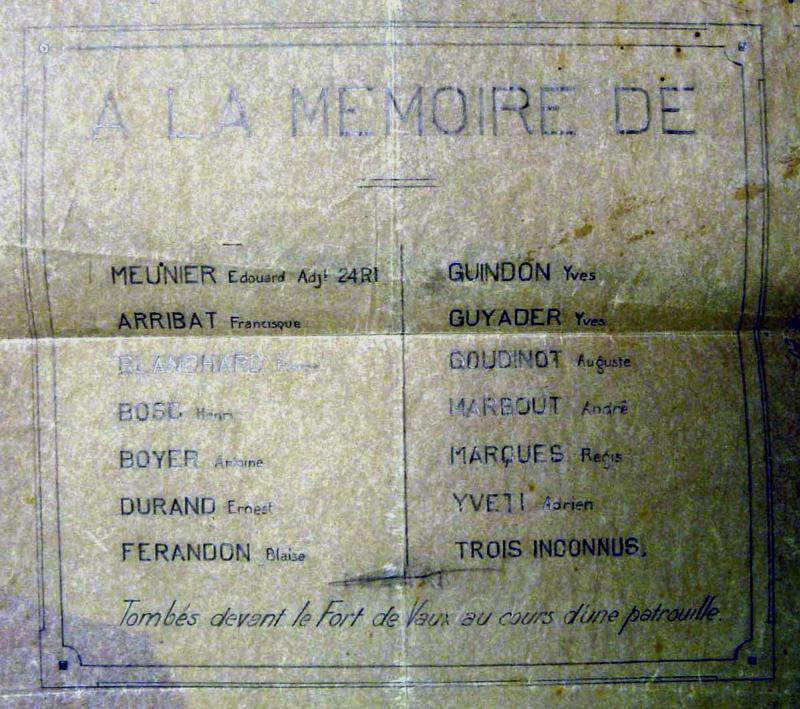 A LA MEMOIRE DE
MEUNIER Edouard Adjt 24RI
ARRIBAT Francisque
BLANCHARD
BOSC Henri
BOYER Antoine
DURAND Ernest
FERANDON Blaise
GUINDON Yves
GUYADER Yves
GOUDINOT Auguste
MARBOUT André
MARQUES Regis
YVETI Adrien
TROIS INCONNUS.
Tombés devant le Fort de Vaux au cours d'une patrouille.